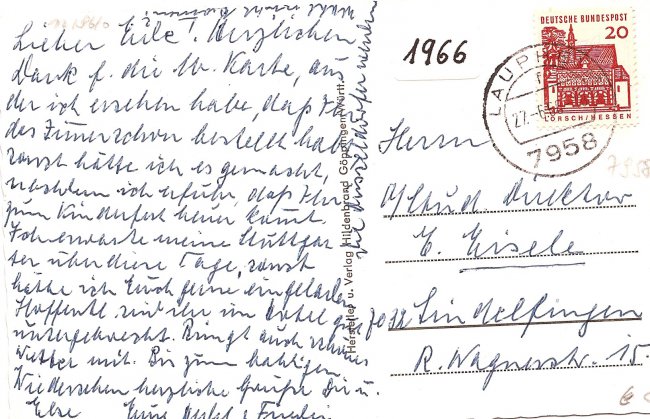 Lieber Erle! Herzlichen
Dank f. die lb. Karte, aus
der ich ersehen habe, daß Ihr
das Zimmer schon bestellt habt
sonst hätte ich es gemacht,
nachdem ich erfuhr, daß Ihr
zum Kinderfest heuer kommt
Ich erwarte meine Stuttgar
ter über diese Tage, sonst
hätte ich Euch gerne eingeladen
Hoffentl. sind wir im Hotel gut
untergebracht. Bringt auch schönes
Wetter mit. Bis zum baldigen
Wiedersehen herzliche Grüße Dir u.
Else Eure
Hersteller u. Verlag Hildenbrand Göppingen Württ.
1966
DEUTSCHE BUNDESPOST
20
LORSCH/HESSEN
LAUPH
27.-6
7958
7958
Herrn
Direktor
E. Eisele
7032 Sindelfingen
R. Wagnerstr. 15.